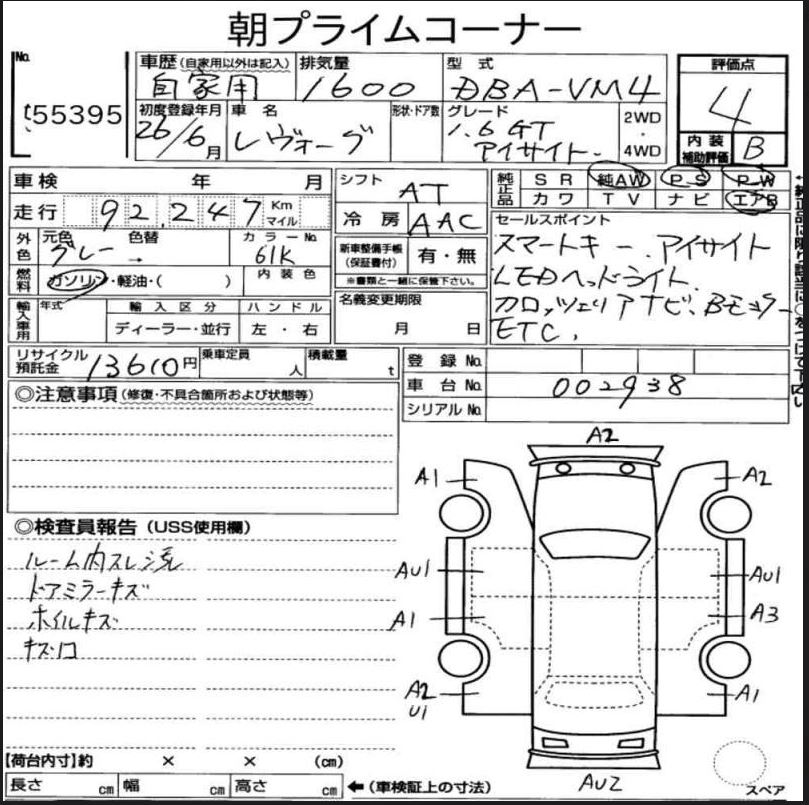 朝プライムコーナー
No.
t55395
車歴(自家用以外は記入)
自家用
排気量
1600
型式
DBA-VM4
評価点
4
初度登録年月
26/6月
車名
レヴォーグ
形状・ドア数
グレード
1.6 GT
アイサイト
2WD
・
4WD
内装
補助評価
B
車検 年 月
走行 92,247 Km
マイル
シフト
AT
冷房
AAC
純正品
SR 純AW PS PW
カワ TV ナビ エアB
外色
元色 色替 カラーNo.
グレー → 61K
燃料
ガソリン・軽油・( )
内装色
新車整備手帳
(保証書付)
有・無
※書類と一緒に保管下さい。
セールスポイント
スマートキー、アイサイト
LEDヘッドライト、
カロッツェリアナビ、Bモニター
ETC、
輸入車用
年式
輸入区分
ハンドル
ディーラー・並行
左・右
名義変更期限
月 日
リサイクル
預託金
13610円
乗車定員
人
積載量
t
登録No.
車台No. 002938
シリアルNo.
◎注意事項(修復・不具合箇所および状態等)
◎検査員報告(USS使用欄)
ルーム内スレ汚
ドアミラーキズ
ホイルキズ
A2
A1 A2
AU1 AU1
A1 A3
A2 A1
U1
AU2
スペア
【荷台内寸】約 × × (cm)
長さ cm 幅 cm 高さ cm ←(車検証上の寸法)